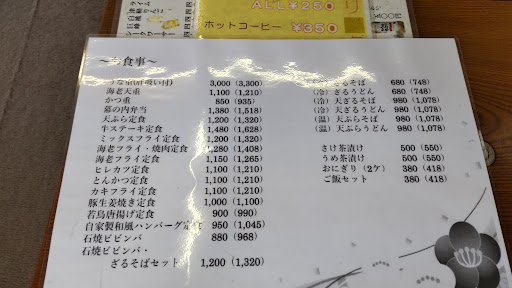 ライム
白桃
巨峰
ALL ¥250
ホットコーヒー ¥350
～お食事～
うな重(肝吸い付) 3,000 (3,300)
海老天重 1,100 (1,210)
かつ重 850 (935)
幕の内弁当 1,380 (1,518)
天ぷら定食 1,200 (1,320)
牛ステーキ定食 1,480 (1,628)
ミックスフライ定食 1,200 (1,320)
海老フライ・焼肉定食 1,280 (1,408)
海老フライ定食 1,150 (1,265)
ヒレカツ定食 1,100 (1,210)
とんかつ定食 1,100 (1,210)
カキフライ定食 1,100 (1,210)
豚生姜焼き定食 1,000 (1,100)
若鳥唐揚げ定食 900 (990)
自家製和風ハンバーグ定食 950 (1,045)
石焼ビビンバ 880 (968)
石焼ビビンバ・
ざるそばセット 1,200 (1,320)
(冷) ざるそば 680 (748)
(冷) ざるうどん 680 (748)
(冷) 天ざるそば 980 (1,078)
(冷) 天ざるうどん 980 (1,078)
(温) 天ぷらそば 980 (1,078)
(温) 天ぷらうどん 980 (1,078)
さけ茶漬け 500 (550)
うめ茶漬け 500 (550)
おにぎり(2ケ) 380 (418)
ご飯セット 380 (418)